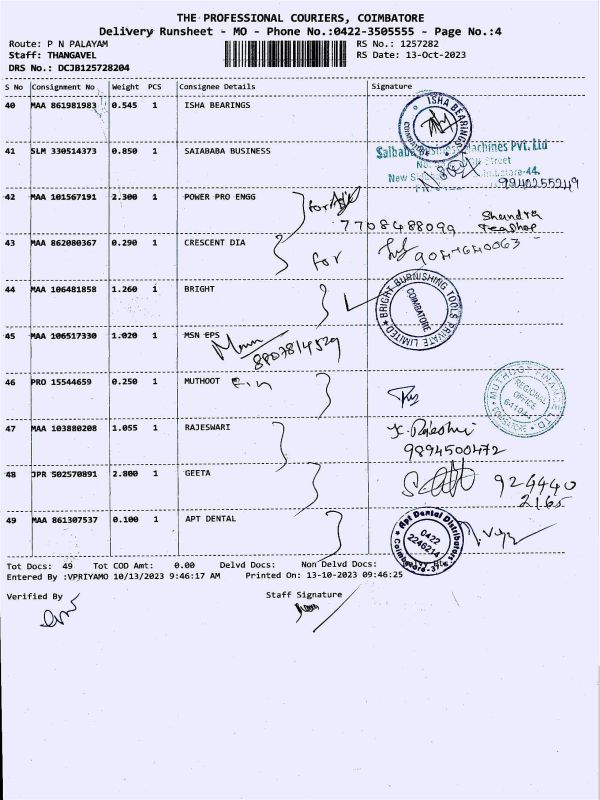 THE PROFESSIONAL COURIERS, COIMBATORE
Delivery Runsheet - MO - Phone No.:0422-3505555 - Page No.:4
Route: P N PALAYAM RS No.: 1257282
Staff: THANGAVEL RS Date: 13-Oct-2023
DRS No.: DCJB125728204
S No Consignment No Weight PCS Consignee Details Signature
40 MAA 861981983 0.545 1 ISHA BEARINGS
ISHA BEARINGS
41 SLM 330514373 0.850 1 SAIABABA BUSINESS
Machines Pvt. Ltd
Street
9940255249
42 MAA 101567191 2.300 1 POWER PRO ENGG
for
7708488099
43 MAA 862080367 0.290 1 CRESCENT DIA
for
44 MAA 106481858 1.260 1 BRIGHT
BRIGHT BURNISHING TOOLS PRIVATE LIMITED
COIMBATORE
45 MAA 106517330 1.020 1 MSN EPS
8807814529
46 PRO 15544659 0.250 1 MUTHOOT Fin
REGIONAL
OFFICE
47 MAA 103880208 1.055 1 RAJESWARI
9894500472
48 JPR 502570891 2.800 1 GEETA
924440
2165
49 MAA 861307537 0.100 1 APT DENTAL
Apt Dental Distributors
0422
2246214
Tot Docs: 49 Tot COD Amt: 0.00 Delvd Docs: Non Delvd Docs:
Entered By :VPRIYAMO 10/13/2023 9:46:17 AM Printed On: 13-10-2023 09:46:25
Verified By Staff Signature